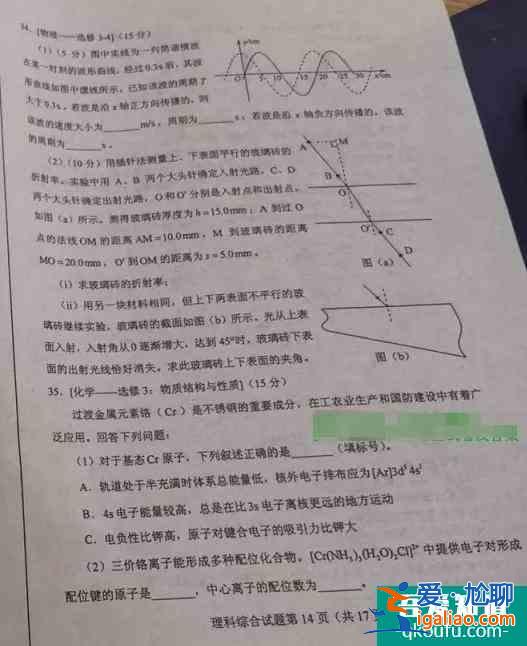 34. [物理——选修 3-4] (15 分)
(1) (5 分) 图中实线为一列简谐横波
在某一时刻的波形曲线，经过0.3s后，其波
形曲线如图中虚线所示，已知该波的周期T
大于0.3s，若波是沿x轴正方向传播的，则
该波的速度大小为______m/s，周期为______s；若波是沿x轴负方向传播的，该波
的周期为______s。
y/cm
O 5 10 15 20 25 30 x/cm
(2) (10 分) 用插针法测量上、下表面平行的玻璃砖的
折射率。实验中用A、B两个大头针确定入射光路，C、D
两个大头针确定出射光路，O和O′分别是入射点和出射点，
如图(a)所示。测得玻璃砖厚度为h=15.0mm；A到过O
点的法线OM的距离AM=10.0mm，M到玻璃砖的距离
MO=20.0mm，O′到OM的距离为s=5.0mm。
A
M
B
O
O′
C
D
图 (a)
(i) 求玻璃砖的折射率；
(ii) 用另一块材料相同，但上下两表面不平行的玻
璃砖继续实验，玻璃砖的截面如图(b)所示。光从上表
面入射，入射角从0逐渐增大，达到45°时，玻璃砖下表
面的出射光线恰好消失。求此玻璃砖上下表面的夹角。
图 (b)
35. [化学——选修 3：物质结构与性质] (15 分)
过渡金属元素铬 (Cr) 是不锈钢的重要成分，在工农业生产和国防建设中有着广
泛应用。回答下列问题：
(1) 对于基态Cr原子，下列叙述正确的是______（填标号）。
A. 轨道处于半充满时体系总能量低，核外电子排布应为[Ar]3d⁵4s¹
B. 4s电子能量较高，总是在比3s电子离核更远的地方运动
C. 电负性比钾高，原子对键合电子的吸引力比钾大
(2) 三价铬离子能形成多种配位化合物。[Cr(NH₃)₃(H₂O)₂Cl]²⁺中提供电子对形成
配位键的原子是______，中心离子的配位数为______。
理科综合试题第 14 页（共 17
爱·尬聊
1galiao.com
qkoufu.com